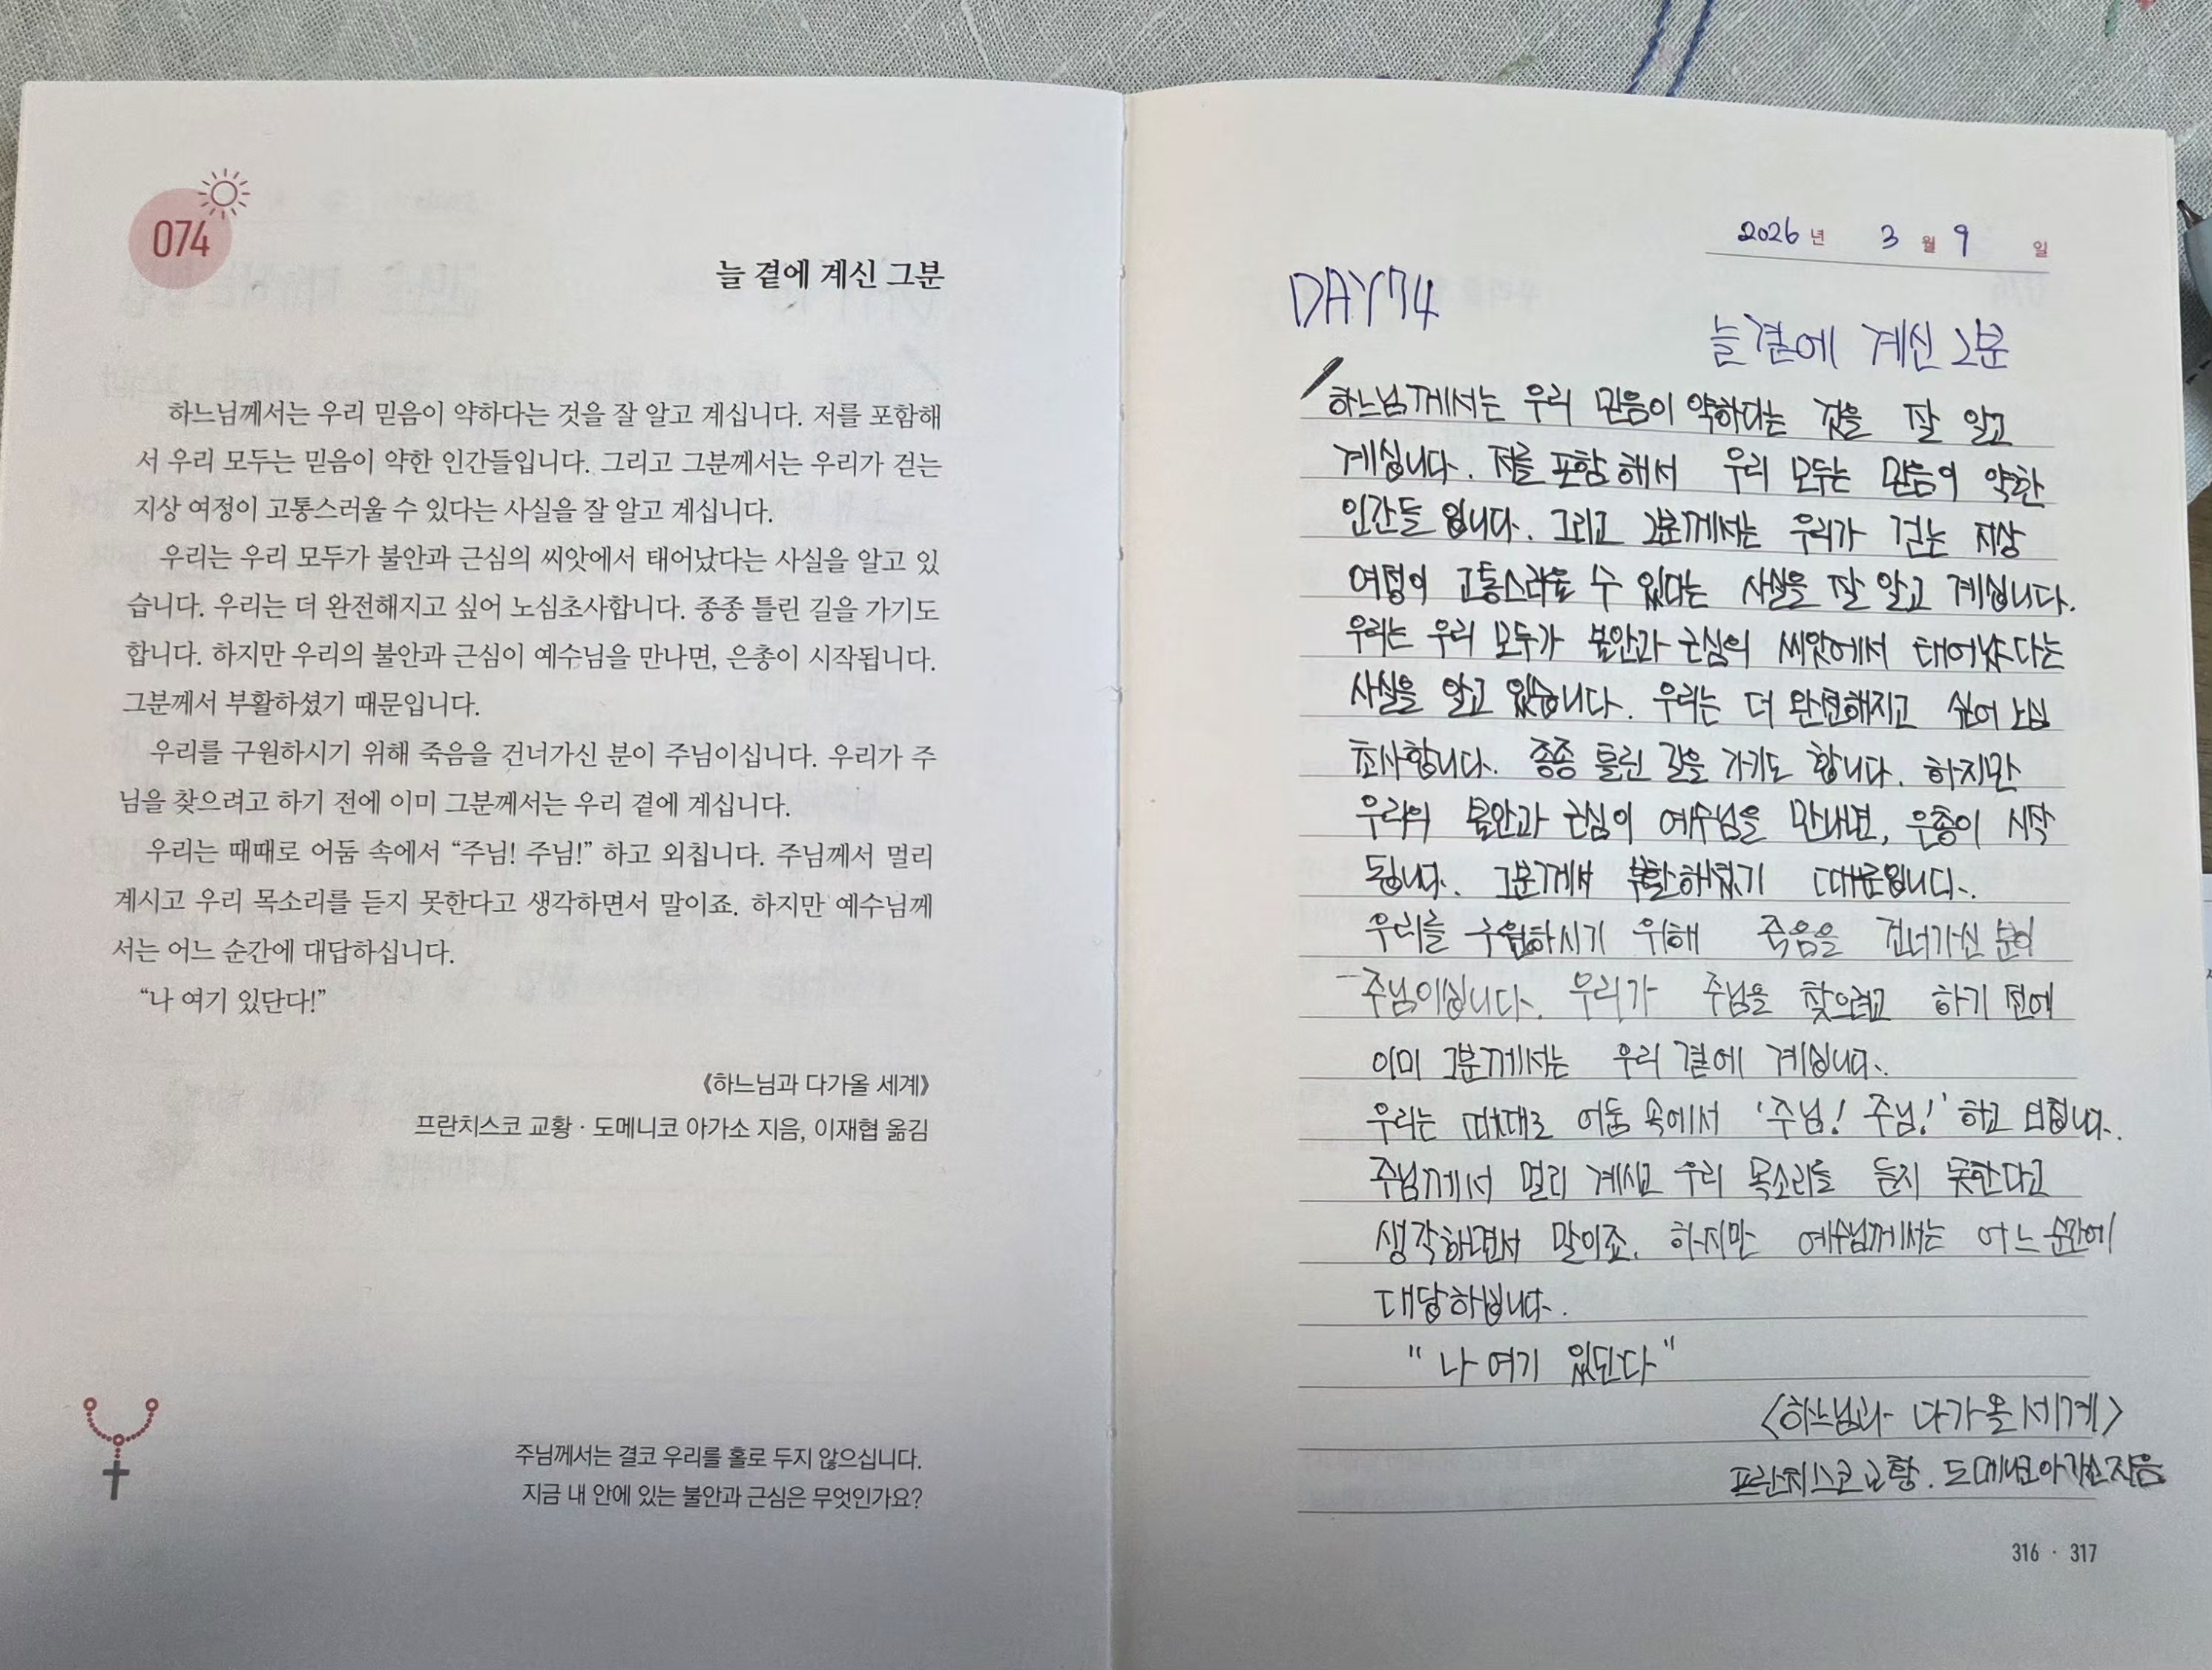 074
늘 곁에 계신 그분
하느님께서는 우리 믿음이 약하다는 것을 잘 알고 계십니다. 저를 포함해
서 우리 모두는 믿음이 약한 인간들입니다. 그리고 그분께서는 우리가 걷는
지상 여정이 고통스러울 수 있다는 사실을 잘 알고 계십니다.
우리는 우리 모두가 불안과 근심의 씨앗에서 태어났다는 사실을 알고 있
습니다. 우리는 더 완전해지고 싶어 노심초사합니다. 종종 틀린 길을 가기도
합니다. 하지만 우리의 불안과 근심이 예수님을 만나면, 은총이 시작됩니다.
그분께서 부활하셨기 때문입니다.
우리를 구원하시기 위해 죽음을 건너가신 분이 주님이십니다. 우리가 주
님을 찾으려고 하기 전에 이미 그분께서는 우리 곁에 계십니다.
우리는 때때로 어둠 속에서 “주님! 주님!” 하고 외칩니다. 주님께서 멀리
계시고 우리 목소리를 듣지 못한다고 생각하면서 말이죠. 하지만 예수님께
서는 어느 순간에 대답하십니다.
“나 여기 있단다!”
《하느님과 다가올 세계》
프란치스코 교황 · 도메니코 아가소 지음, 이재협 옮김
주님께서는 결코 우리를 홀로 두지 않으십니다.
지금 내 안에 있는 불안과 근심은 무엇인가요?
2026 년 3 월 9 일
DAY 74
늘 곁에 계신 그분
하느님께서는 우리 믿음이 약하다는 것을 잘 알고
계십니다. 저를 포함 해서 우리 모두는 믿음이 약한
인간들 입니다. 그리고 그분께서는 우리가 걷는 지상
여정이 고통스러울 수 있다는 사실을 잘 알고 계십니다.
우리는 우리 모두가 불안과 근심의 씨앗에서 태어났다는
사실을 알고 있습니다. 우리는 더 완전해지고 싶어 노심
초사합니다. 종종 틀린 길을 가기도 합니다. 하지만
우리의 불안과 근심이 예수님을 만나면, 은총이 시작
됩니다. 그분께서 부활하셨기 때문입니다.
우리를 구원하시기 위해 죽음을 건너가신 분이
주님이십니다. 우리가 주님을 찾으려고 하기 전에
이미 그분께서는 우리 곁에 계십니다.
우리는 때때로 어둠 속에서 '주님! 주님!' 하고 외칩니다.
주님께서 멀리 계시고 우리 목소리를 듣지 못한다고
생각하면서 말이죠. 하지만 예수님께서는 어느 순간에
대답하십니다.
" 나 여기 있단다 "
<하느님과 다가올 세계>
프란치스코 교황 . 도메니코 아가소 지음
316 · 317